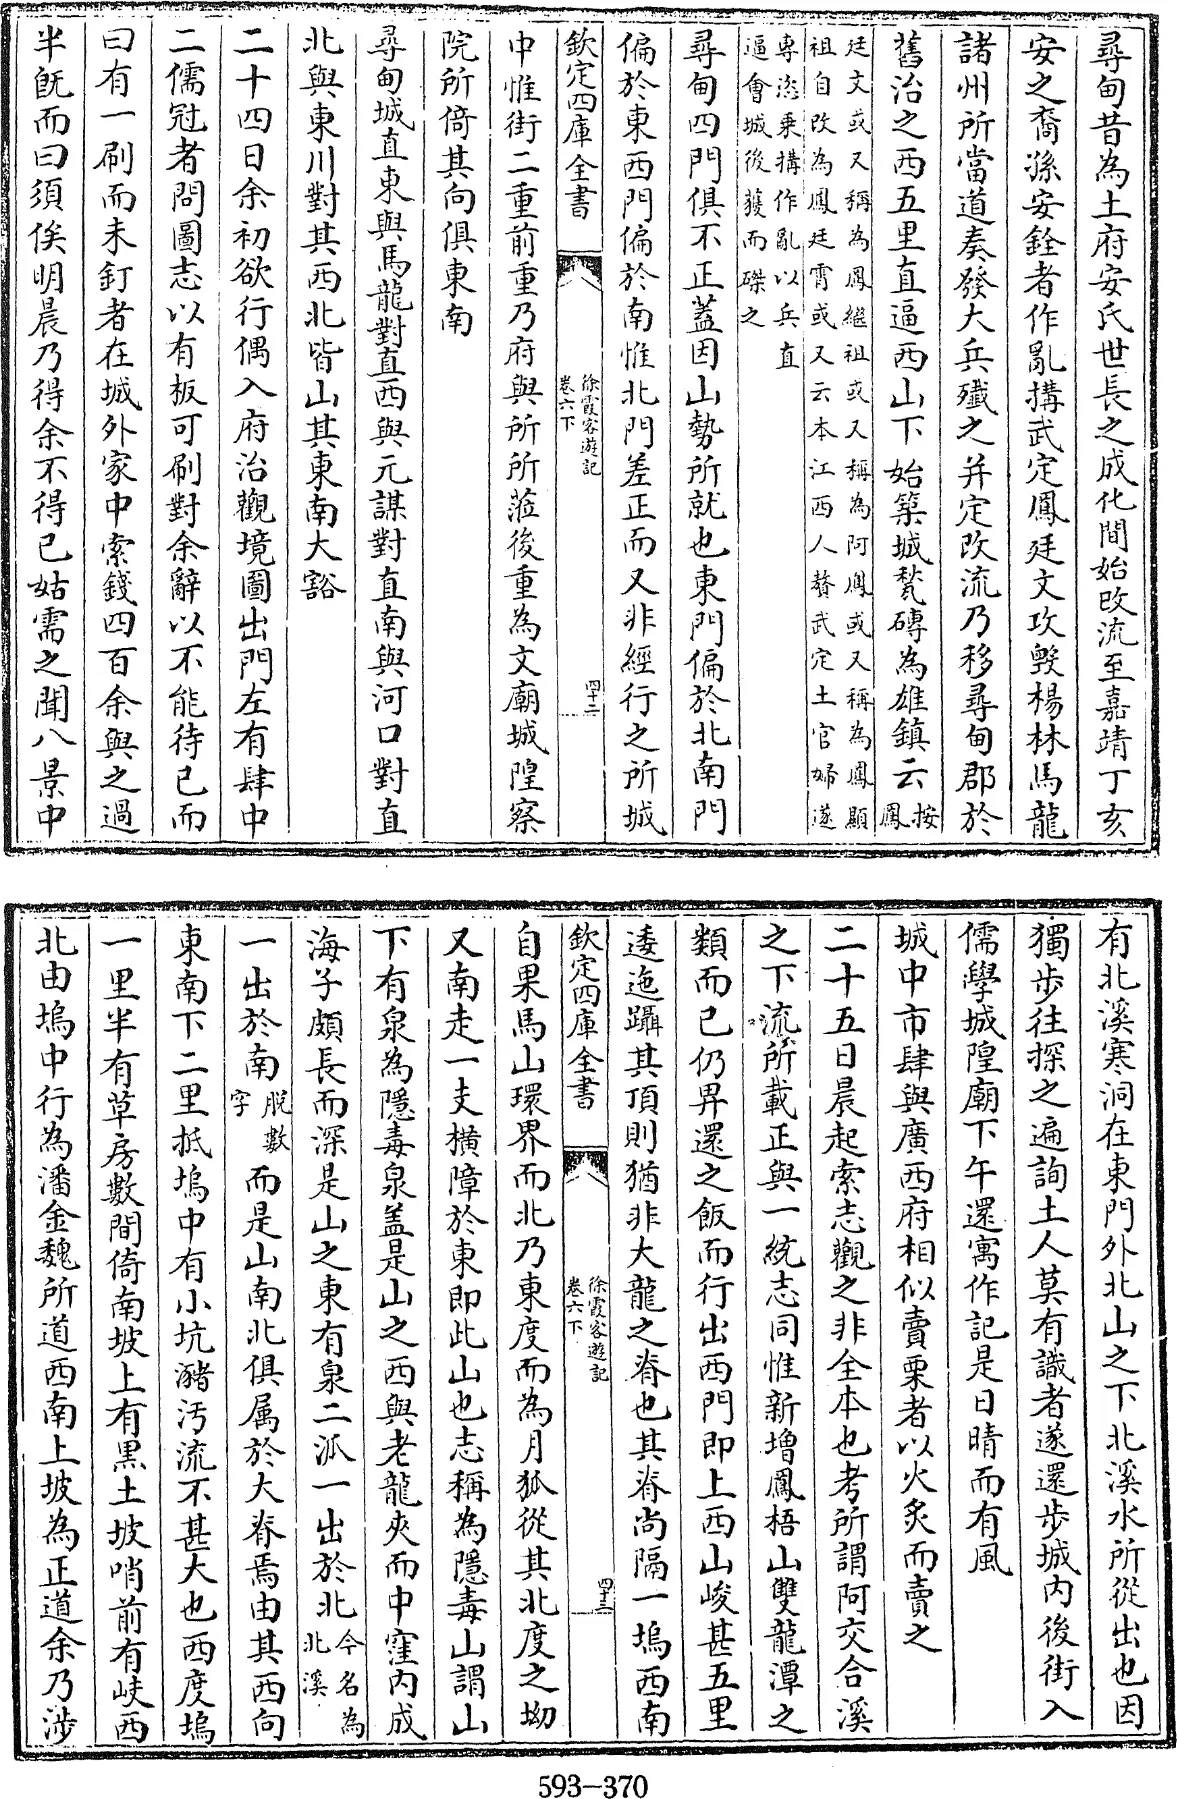 尋甸昔為土府安氏世長之成化間始改流至嘉靖丁亥
安之裔孫安銓者作亂搆武定鳳廷文攻毀楊林馬龍
諸州所當道奏發大兵殲之并定改流乃移尋甸郡於
舊治之西五里直逼西山下始築城甃磚為雄鎮云按鳳
廷文或又稱為鳳繼祖或又稱為阿鳳或又稱為鳳顯
祖自改為鳳廷霄或又云本江西人贅武定土官婦遂
專恣乗搆作亂以兵直
逼會城後獲而磔之
尋甸四門俱不正蓋因山勢所就也東門偏於北南門
偏於東西門偏於南惟北門差正而又非經行之所城
欽定四庫全書
徐霞客遊記
卷六下
四十二
中惟街二重前重乃府與所所蒞後重為文廟城隍察
院所倚其向俱東南
尋甸城直東與馬龍對直西與元謀對直南與河口對直
北與東川對其西北皆山其東南大豁
二十四日余初欲行偶入府治觀境圖出門左有肆中
二儒冠者問圖志以有板可刷對余辭以不能待已而
曰有一刷而未釘者在城外家中索錢四百余與之過
半旣而曰須俟明晨乃得余不得已姑需之聞八景中
有北溪寒洞在東門外北山之下北溪水所從出也因
獨步往探之遍詢土人莫有識者遂還步城内後街入
儒學城隍廟下午還寓作記是日晴而有風
城中市肆與廣西府相似賣栗者以火炙而賣之
二十五日晨起索志觀之非全本也考所謂阿交合溪
之下流所載正與一統志同惟新增鳳梧山雙龍潭之
類而已仍畀還之飯而行出西門即上西山峻甚五里
逶迤躡其頂則猶非大龍之脊也其脊尚隔一塢西南
欽定四庫全書
徐霞客遊記
卷六下
四十三
自果馬山環界而北乃東度而為月狐從其北度之坳
又南走一支橫障於東即此山也志稱為隱毒山謂山
下有泉為隱毒泉蓋是山之西與老龍夾而中窪内成
海子頗長而深是山之東有泉二派一出於北今名為北溪
一出於南脱數字而是山南北俱属於大脊焉由其西向
東南下二里抵塢中有小坑瀦汚流不甚大也西度塢
一里半有草房數間倚南坡上有黒土坡哨前有岐西
北由塢中行為潘金魏所道西南上坡為正道余乃涉
593-370